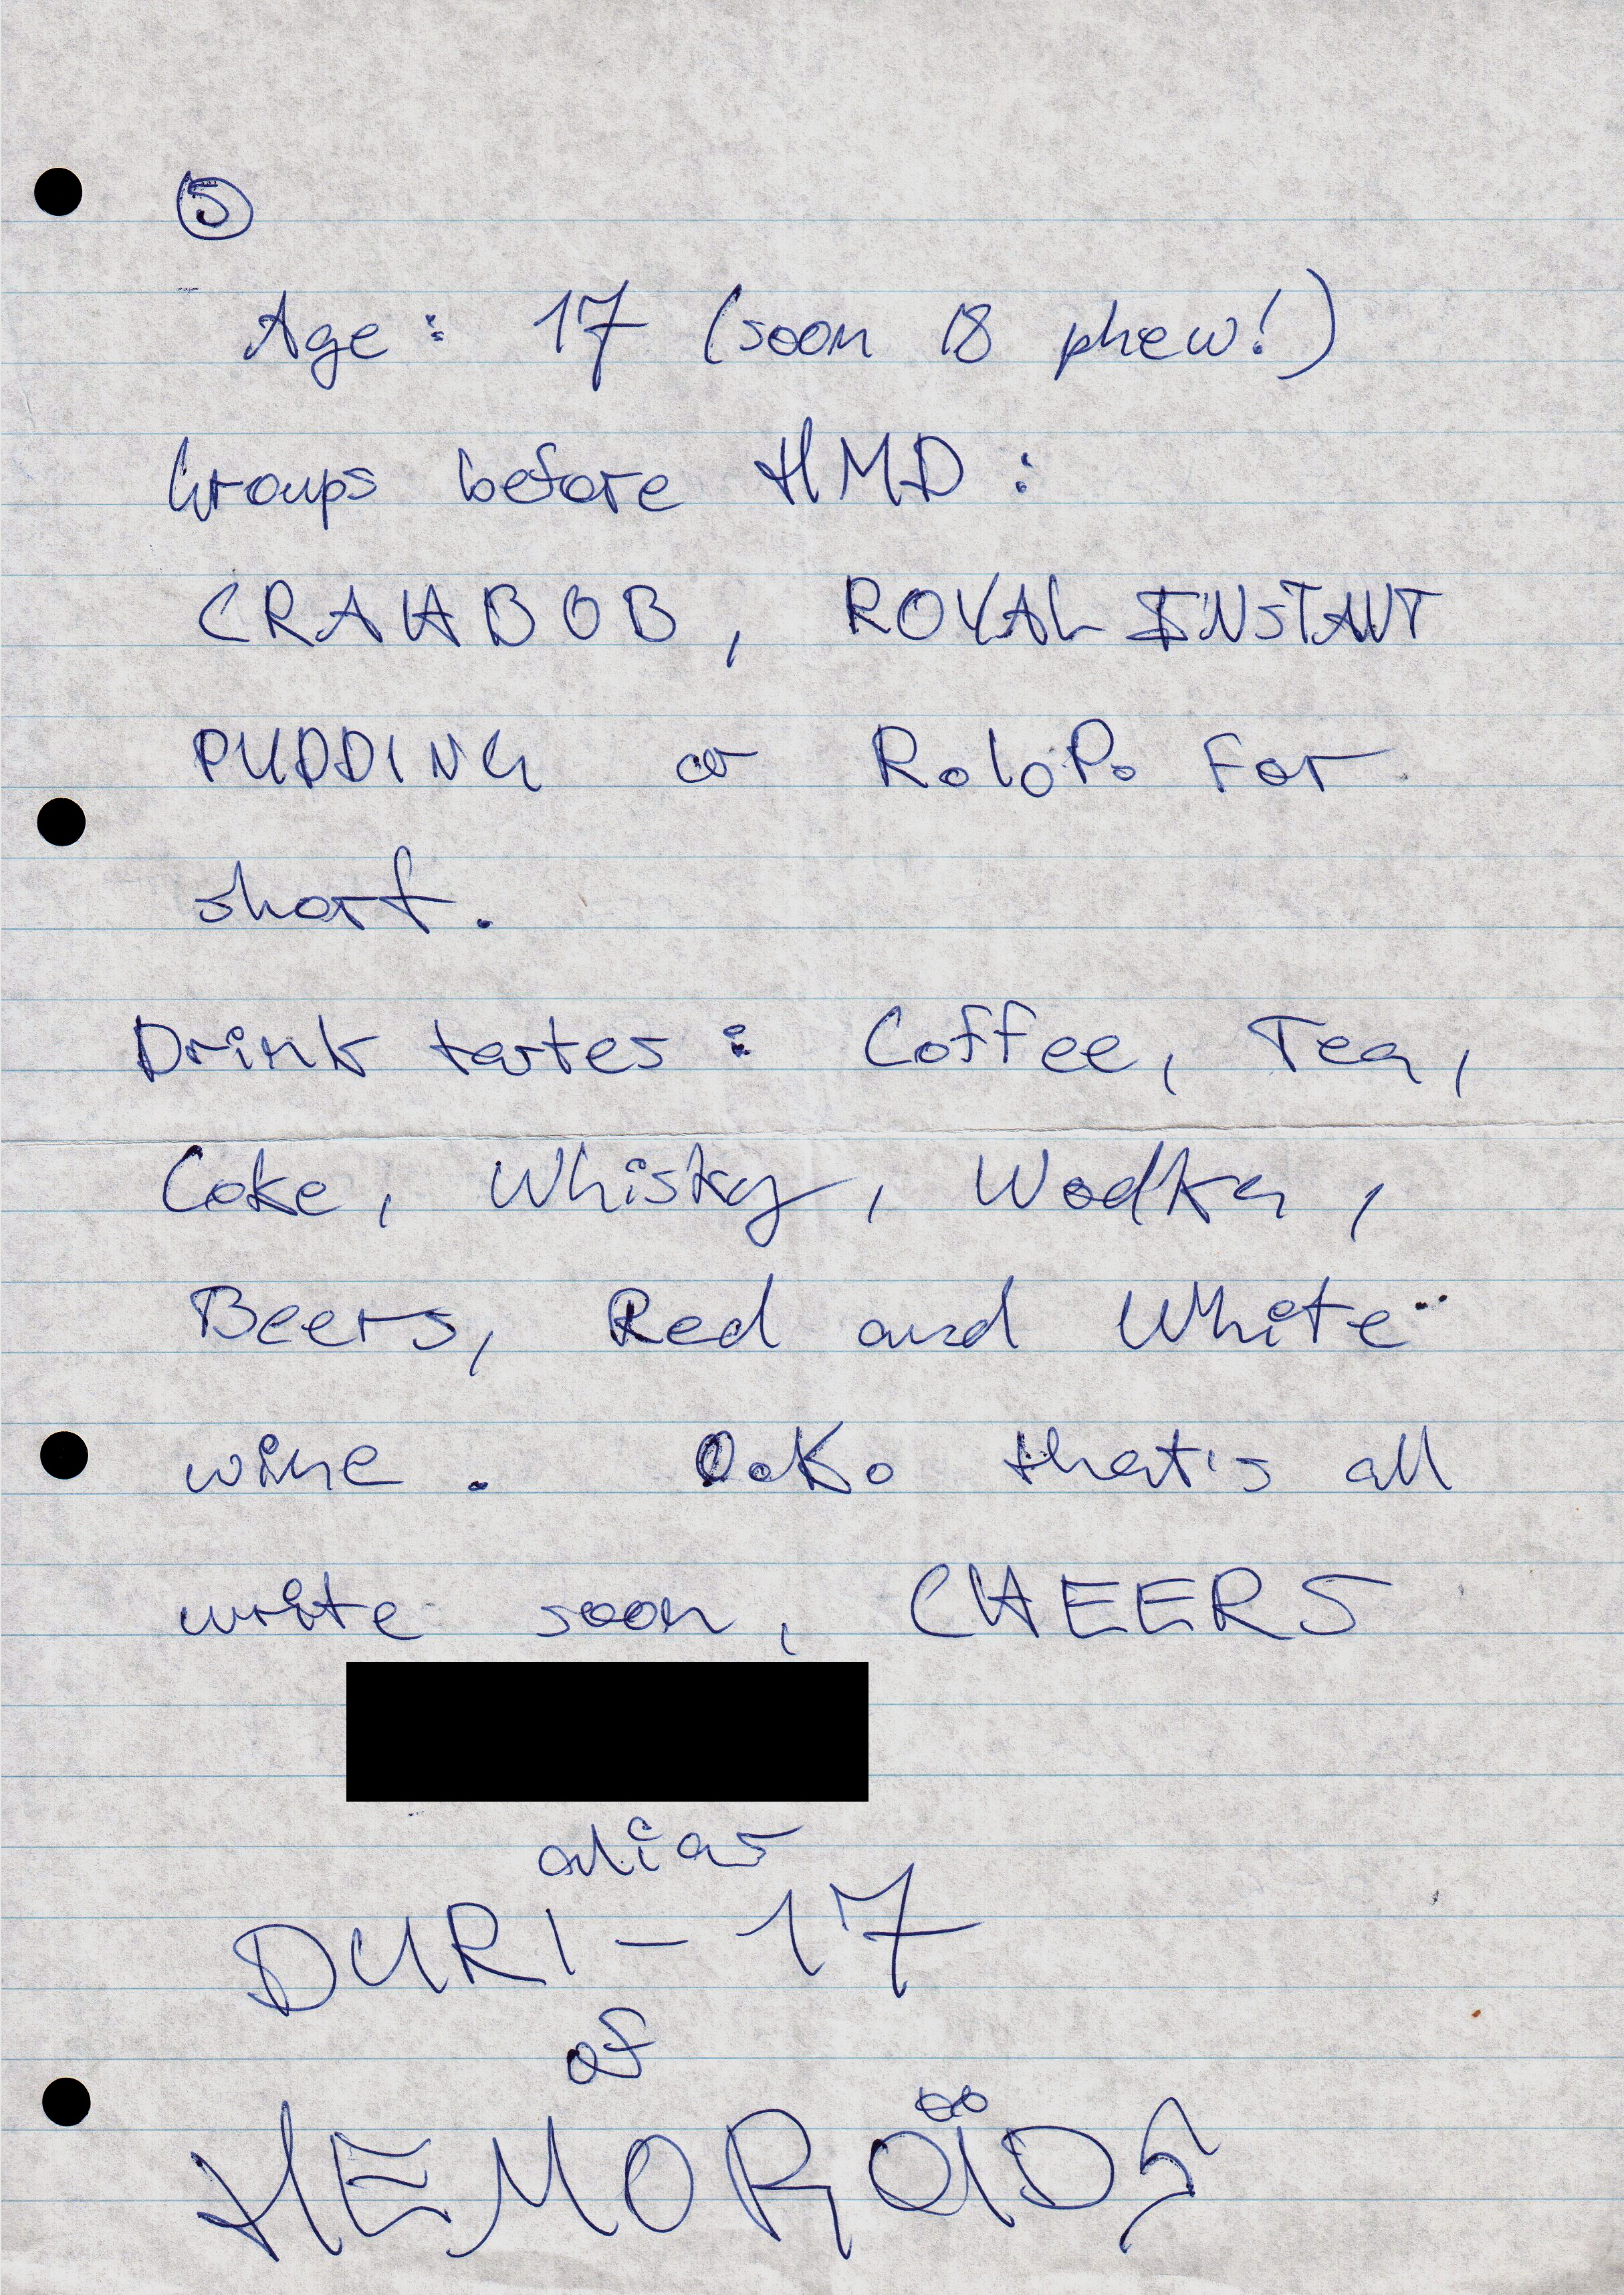 5
Age: 17 (soon 18 phew!)
Groups before HMD:
CRAHBOB, ROYAL INSTANT
PUDDING or R.I.P. for
short.
Drink tastes: Coffee, Tea,
Coke, Whisky, Wodka,
Beers, Red and White
wine. O.K. that's all
write soon, CHEERS
alias
DURI-17
of
HEMOROÏDS